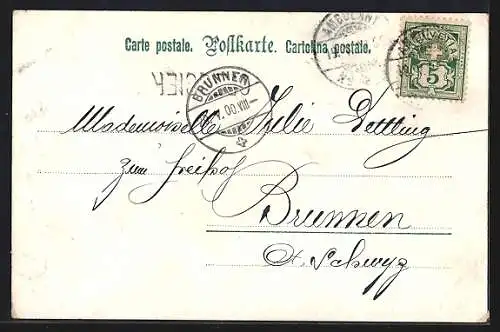 Carte postale. Postkarte. Cartolina postale.
HELVETIA
5
BRUNNEN
.00.VIII-
Mademoiselle Julie Dettling
zum Freihof
Brunnen
Ct. Schwyz